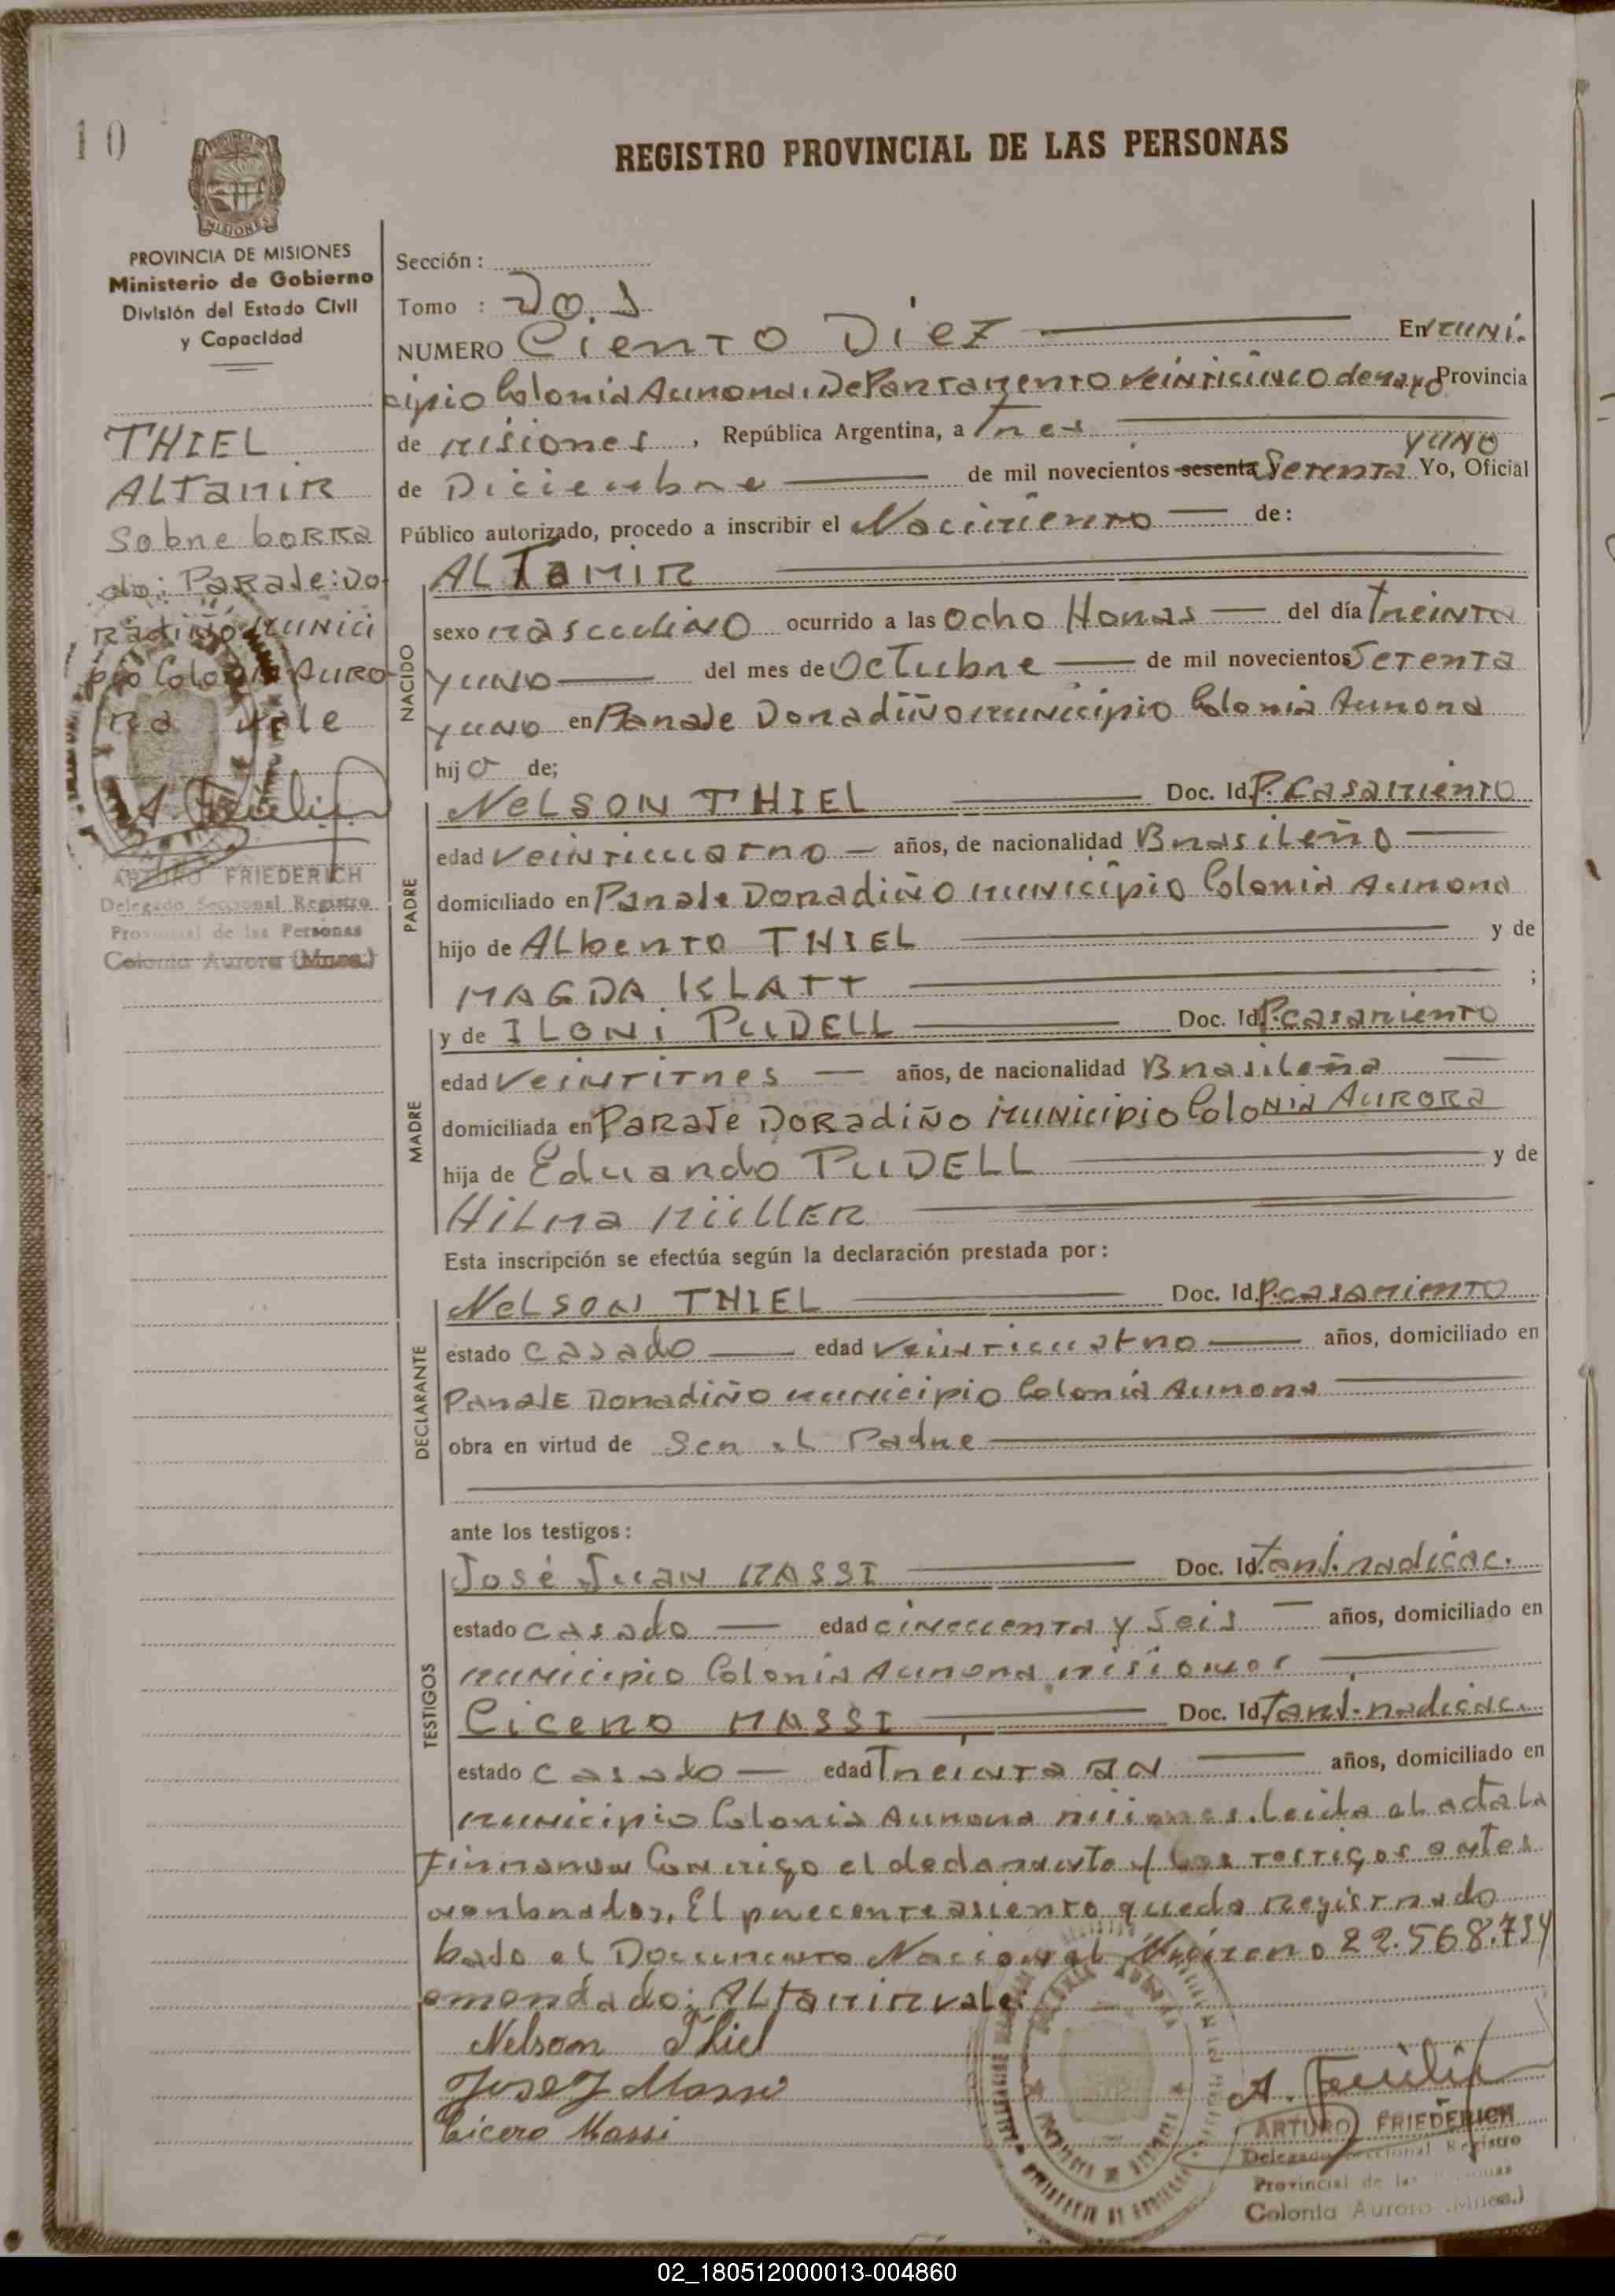 10
REGISTRO PROVINCIAL DE LAS PERSONAS
PROVINCIA DE MISIONES
Ministerio de Gobierno
División del Estado Civil
y Capacidad
THIEL
ALTAMIR
Sobre borra
do: Paraje: Do
radiño Munici
pio Colonia Auro
ra vale
ARTURO FRIEDERICH
Delegado Seccional Registro
Provincial de las Personas
Colonia Aurora (Mnes.)
Sección :
Tomo : Dos
NUMERO Ciento Diez En Muni-
cipio Colonia Aurora, Departamento veinticinco de mayo Provincia
de Misiones, República Argentina, a Tres
de Diciembre de mil novecientos sesenta y Setenta y uno Yo, Oficial
Público autorizado, procedo a inscribir el Nacimiento de:
NACIDO
ALTAMIR
sexo masculino ocurrido a las Ocho Horas del día Treinta
y uno del mes de Octubre de mil novecientos Setenta
y uno en Paraje Doradiño municipio Colonia Aurora
hijo de;
PADRE
NELSON THIEL Doc. Id. P. Casamiento
edad veinticuatro años, de nacionalidad Brasileño
domiciliado en Paraje Doradiño municipio Colonia Aurora
hijo de Alberto THIEL y de
MAGDA KLATT ;
MADRE
y de ILONI PUDELL Doc. Id. P. casamiento
edad Veintitres años, de nacionalidad Brasileña
domiciliada en Paraje Doradiño Municipio Colonia Aurora
hija de Eduardo PUDELL y de
Hilma MÜLLER
Esta inscripción se efectúa según la declaración prestada por :
DECLARANTE
NELSON THIEL Doc. Id. P. casamiento
estado Casado edad veinticuatro años, domiciliado en
Paraje Doradiño municipio Colonia Aurora
obra en virtud de Ser el Padre
ante los testigos :
TESTIGOS
José Juan MASSI Doc. Id. Tarj. radicac.
estado casado edad cincuenta y Seis años, domiciliado en
municipio Colonia Aurora, misiones
Cicero MASSI Doc. Id. Tarj. radicac.
estado casado edad Treinta años, domiciliado en
municipio Colonia Aurora misiones. Leida el acta la
Firmaron Conmigo el declarante y los testigos antes
nombrados. El precente asiento queda registrado
bajo el Documento Nacional Número 22.568.734
emendado: ALTamir vale:
Nelson Thiel
Jose J Massi
Cicero Massi
ARTURO FRIEDERICH
Delegado Seccional Registro
Provincial de las
Colonia Aurora (Mnes.)
02_180512000013-004860